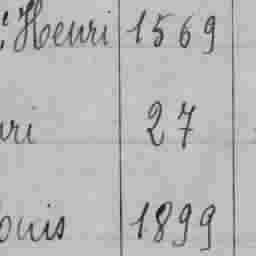 Henri 1569
uri 27
ouis 1899